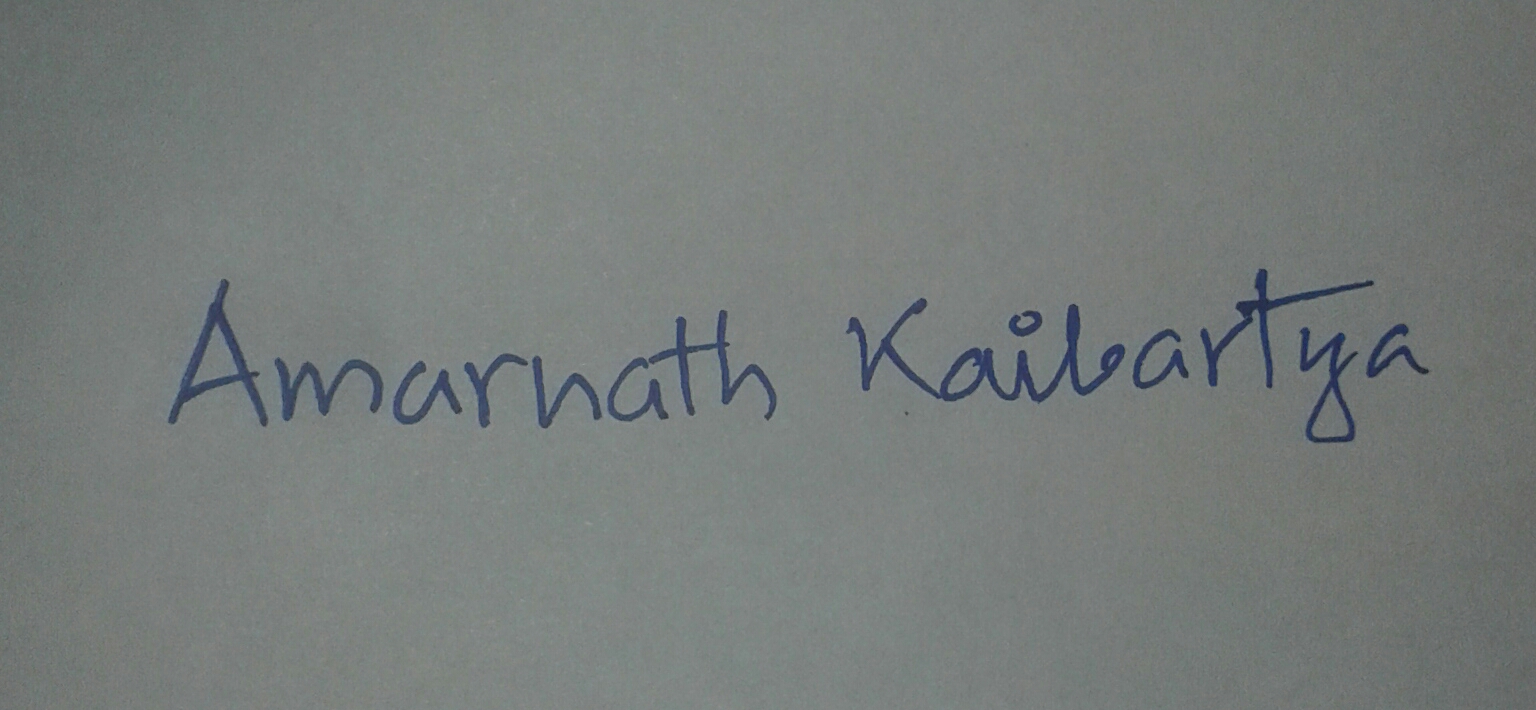 Amarnath Kaibartya